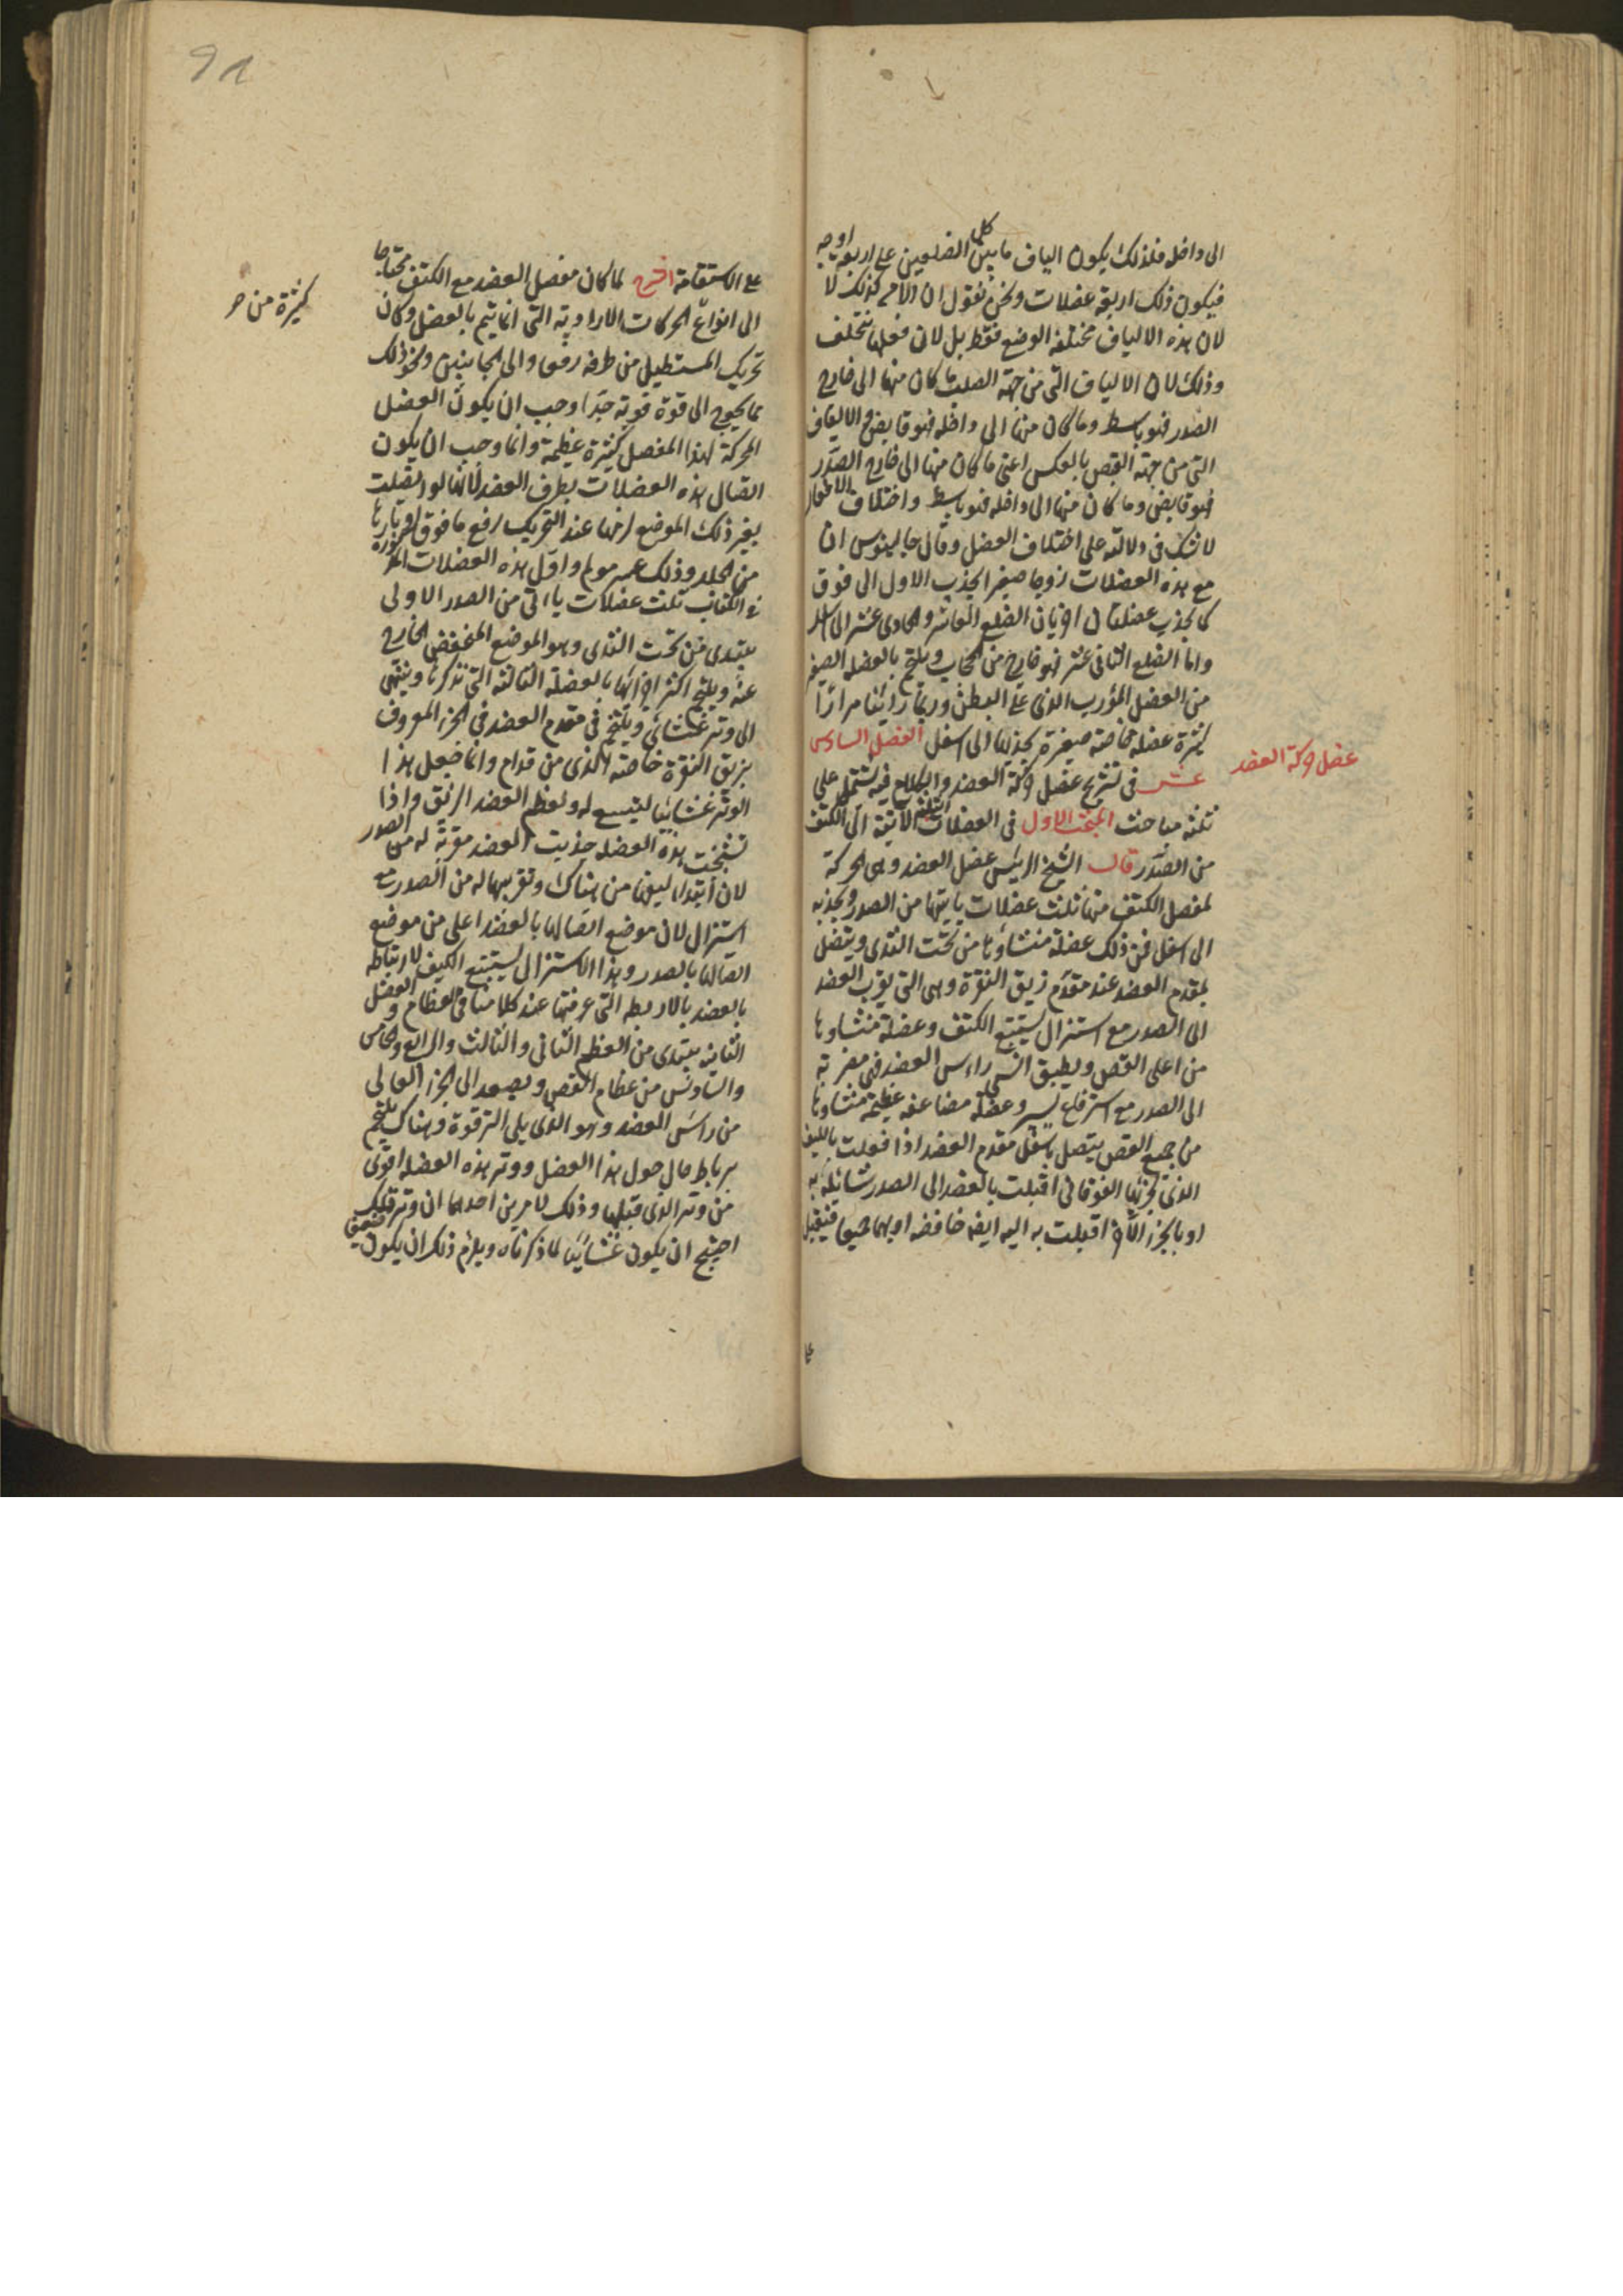 الى داخله فلذلك يكون الياف ما بين كل الضلعين على اربعة اوجه
فيكون ذلك اربعة عضلات ونحن نقول ان الامر كذلك لا
لان هذه الالياف مختلفة الوضع فقط بل لان فعلها مختلف
وذلك لان الالياف التى من جهة الصلب ما كان منها الى خارج
الصدر فهو باسط وما كان منها الى داخله فهو قابض والالياف
التى من جهة القص بالعكس اعنى ما كان منها الى خارج الصدر
فهو قابض وما كان منها الى داخله فهو باسط واختلاف الافعال
لا شك فى دلالته على اختلاف العضل وقال جالينوس ان
مع هذه العضلات زوجا صغيرا يجذب الاول الى فوق
كما يجذب عضلتان اخريان الضلع العاشر والحادى عشر الى اسفل
واما الضلع الثانى عشر فهو خارج من الحجاب ويلتحم بالعضلة الصغير
من العضل المورب الذى على البطن وربما راينا مرارا
كثيرة عضلة خاصة صغيرة تجذبها الى اسفل الفصل السادس
عضل حركة العضد
عشر فى تشريح عضل حركة العضد والكلام فيه يشتمل على
ثلثة مباحث المبحث الاول فى العضلات الثلثة الآتية الى الكتف
من الصدر قال الشيخ الرئيس عضل العضد وهى المحركة
لمفصل الكتف منها ثلث عضلات ياتيها من الصدر ويجذبه
الى اسفل فمن ذلك عضلة منشاوها من تحت الثدى ويتصل
بمقدم العضد عند مقدم زيق النقرة وهى التى يقرب العضد
الى الصدر مع استنزال يستتبع الكتف وعضلة منشاوها
من اعلى القص ويطيق انسى راس العضد فهى مقربة
الى الصدر مع استرفاع يسير وعضلة مضاعفة عظيمة منشاوها
من جميع القص يتصل باسفل مقدم العضد اذا فعلت بالليف
الذى لجزئها الفوقانى اقبلت بالعضد الى الصدر شائلة به
او بالجزء الآخر اقبلت به اليه ايضا خافضة او بهما جميعا فيقبل
على الاستقامة الشرح لما كان مفصل العضد مع الكتف محتاجا
كثيرة من حر
الى انواع الحركات الارادية التى انما يتم بالعضل وكان
تحريك المستطيل من طرفه رفعا والى الجانبين ونحو ذلك
مما يحوج الى قوة قوية جدا وجب ان يكون العضل
المحركة لهذا المفصل كثيرة عظيمة وانما وجب ان يكون
اتصال هذه العضلات بطرف العضد لانها لو اتصلت
بغير ذلك الموضع لزمها عند التحريك رفع ما فوق اوتارها
من الجلد وذلك عسر مولم واول هذه العضلات المذكورة
فى الكتاب ثلث عضلات ياتى من الصدر الاولى
يبتدى من تحت الثدى وهو الموضع المنخفض الخارج
عنه ويلتحم اكثر اجزائها بالعضلة الثالثة التى نذكرها وينتهى
الى وتر غشائى ويلتحم فى مقدم العضد فى الجزء المعروف
بزيق النقرة خاصة الذى من قدام وانما جعل هذا
الوتر غشائيا ليتسع له ولعظم العضد الزيق واذا
تشنجت هذه العضلة جذبت العضد مقربة له من الصدر
لان ابتداء ليفها من هناك وتقريبها له من الصدر مع
استنزال لان موضع اتصالها بالعضد اعلى من موضع
اتصالها بالصدر وهذا الاستنزال يستتبع الكتف لارتباطه
بالعضد بالاربطة التى عرفتها عند كلامنا فى العظام والعضل
الثانية يبتدى من العظم الثانى والثالث والرابع والخامس
والسادس من عظام القص ويصعد الى الجزء العالى
من راس العضد وهو الذى يلى الترقوة وهناك يلتحم
برباط حال حول هذا العضل ووتر هذه العضلة اقوى
من وتر الذى قبلها وذلك لامرين احدهما ان وتر تلك
احتيج ان يكون غشائيا لما ذكرناه ويلزم ذلك ان يكون ضعيفا